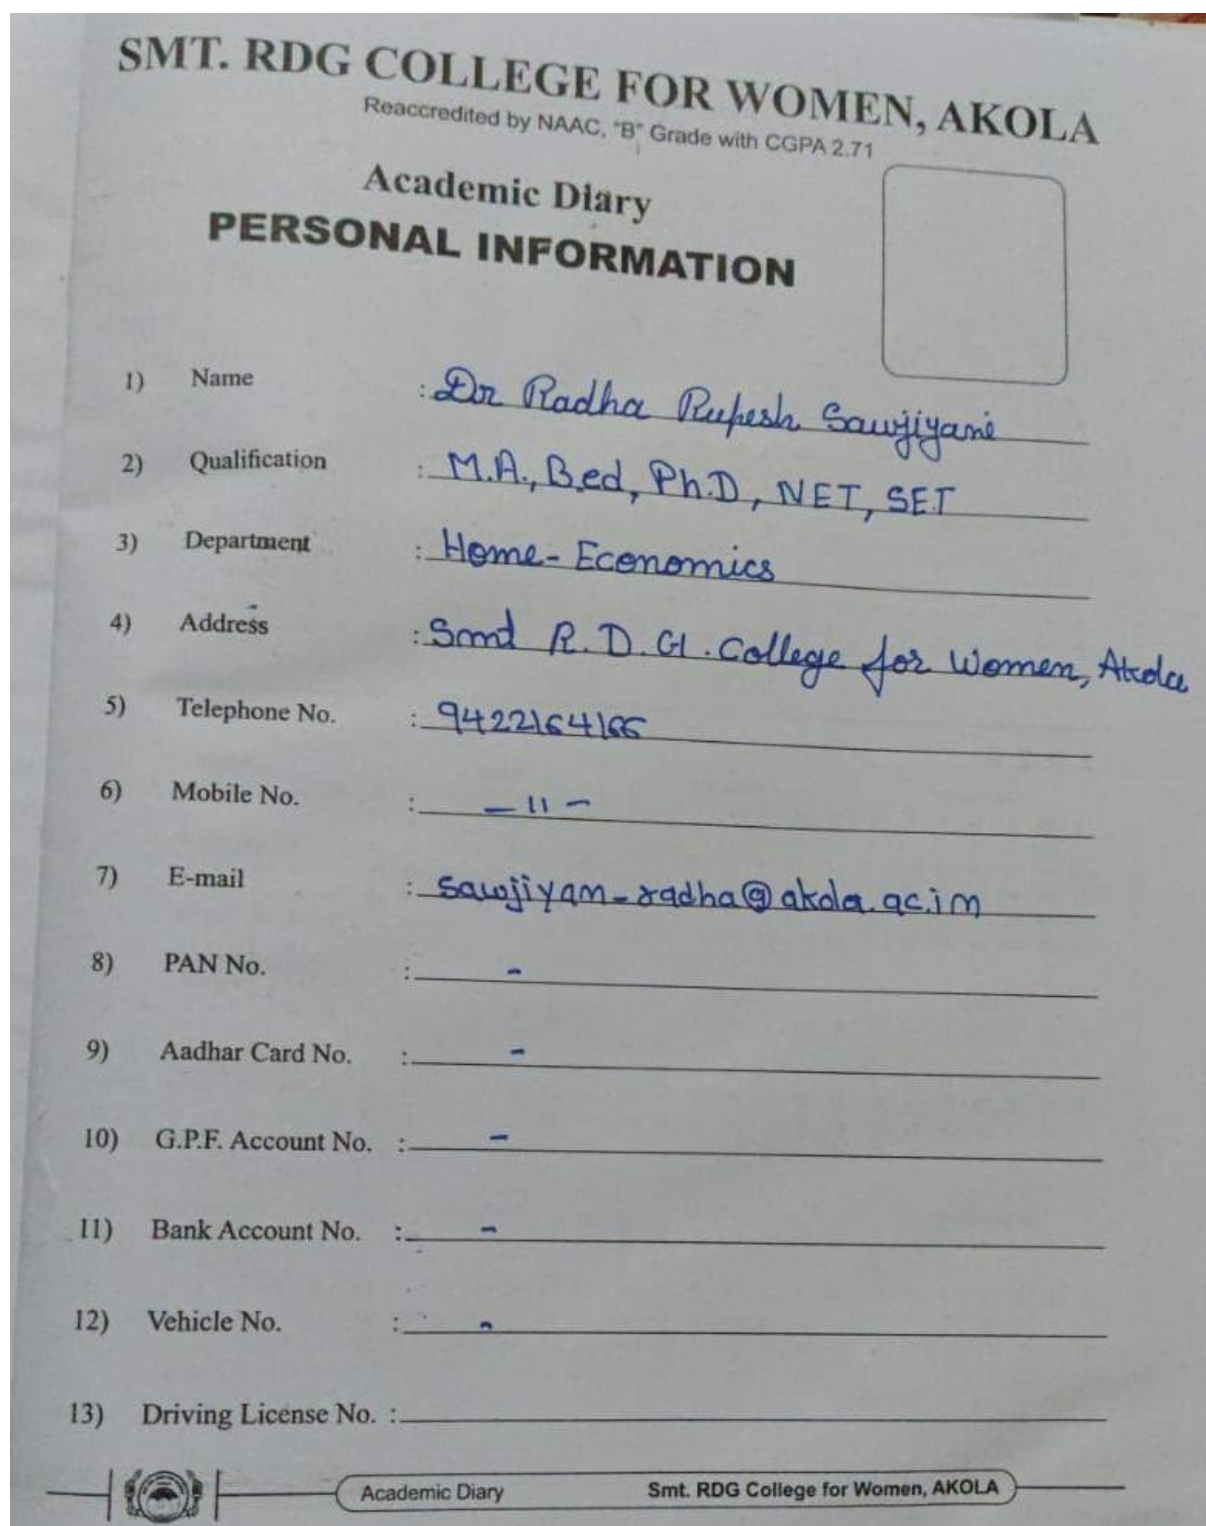 SMT. RDG COLLEGE FOR WOMEN, AKOLA
Reaccredited by NAAC, "B" Grade with CGPA 2.71
Academic Diary
PERSONAL INFORMATION
1) Name : Dr Radha Rupesh Sawjiyani
2) Qualification : M.A., B.ed, Ph.D, NET, SET
3) Department : Home-Economics
4) Address : Smt R.D.G. College for Women, Akola
5) Telephone No. : 9422164166
6) Mobile No. : —11—
7) E-mail : sawjiyani_radha@akola.ac.in
8) PAN No. : -
9) Aadhar Card No. : -
10) G.P.F. Account No. : -
11) Bank Account No. : -
12) Vehicle No. : -
13) Driving License No. :
Academic Diary Smt. RDG College for Women, AKOLA